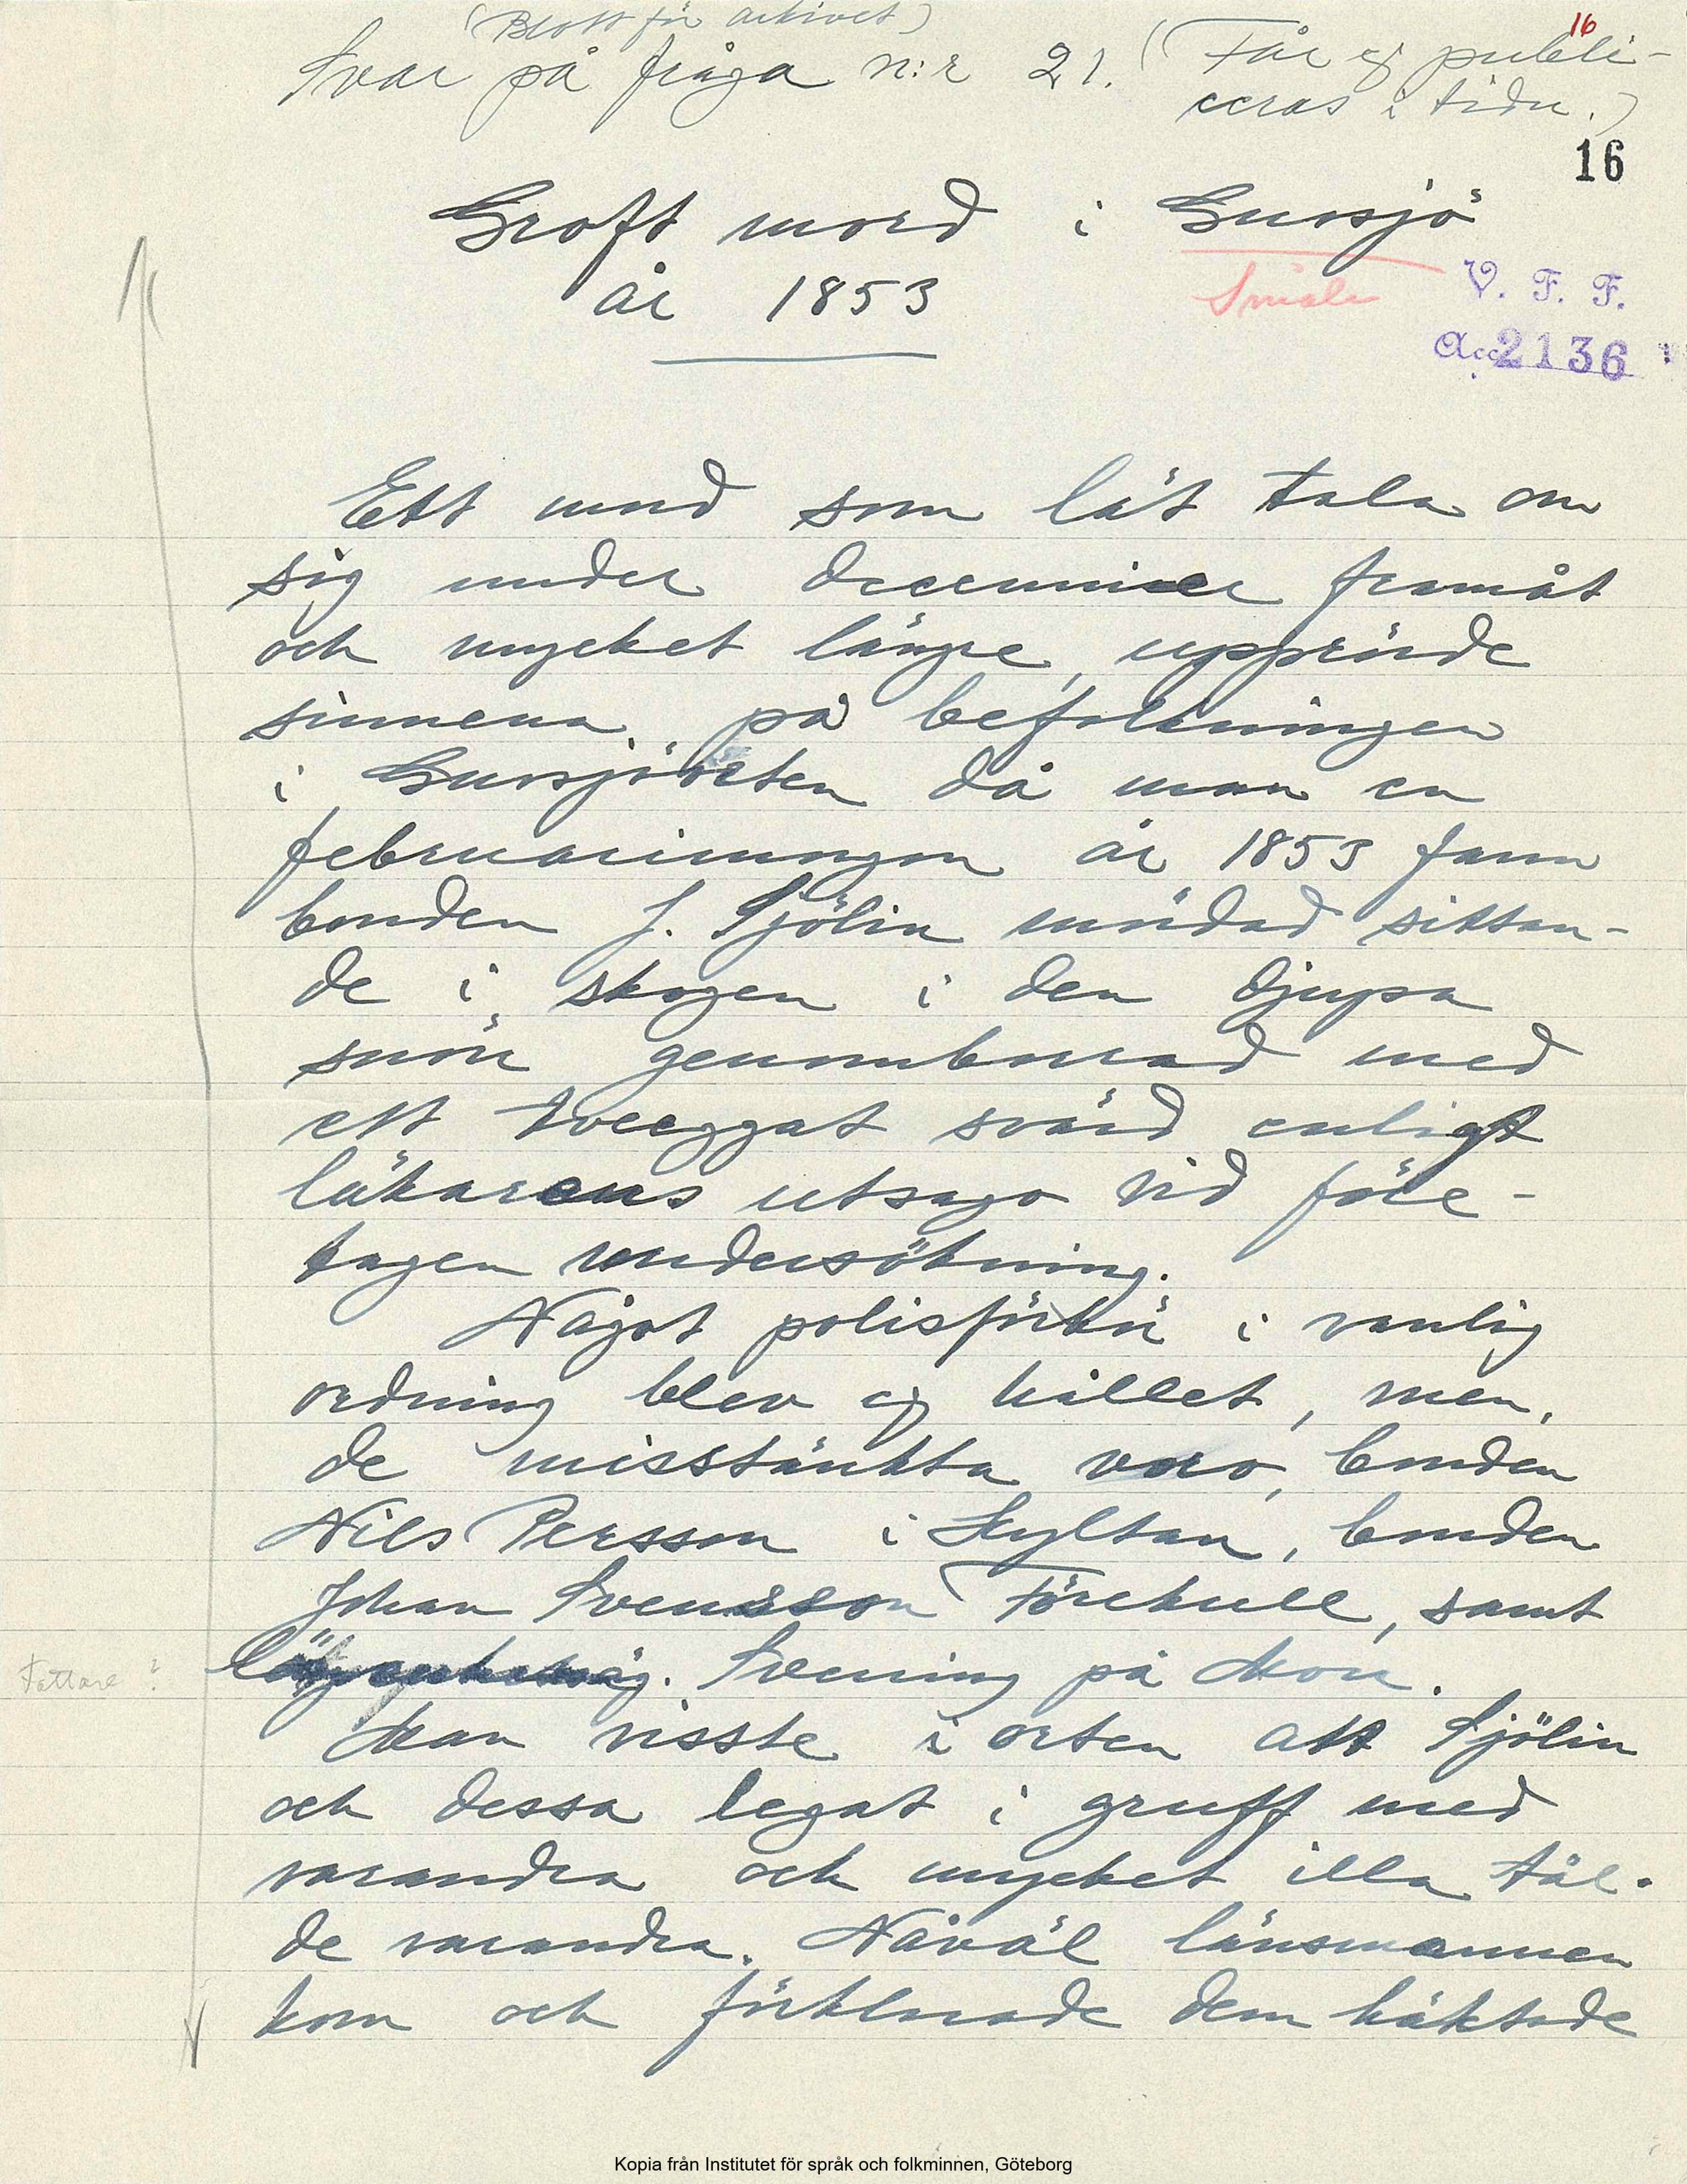 (Blott för arkivet)
16
Svar på fråga n:r 21. (Får ej publi-
ceras i tidn.)
16
Groft mord i Gussjö
år 1853
Småle
V. F. F.
Acc. 2136
Ett mord som lät tala om
sig under decennier framåt
och mycket längre, upprörde
sinnena på befolkningen
i Gussjöorten då man en
februarimorgon år 1853 fann
bonden J. Sjölin mördad sittan-
de i skogen i den djupa
snön genomborrad med
ett tveeggat svärd enligt
läkarens utsago vid före-
tagen undersökning.
Något polisförhör i vanlig
ordning blev ej hållet, men,
de misstänkta voro, bonden
Nils Persson i Skyltan, bonden
Johan Svensson Förekull, samt
Svening på Mon.
Fattare?
Man visste i orten att Sjölin
och dessa legat i gruff med
varandra och mycket illa tål-
de varandra. Nåväl länsmannen
kom och förklarade dem häktade
Kopia från Institutet för språk och folkminnen, Göteborg